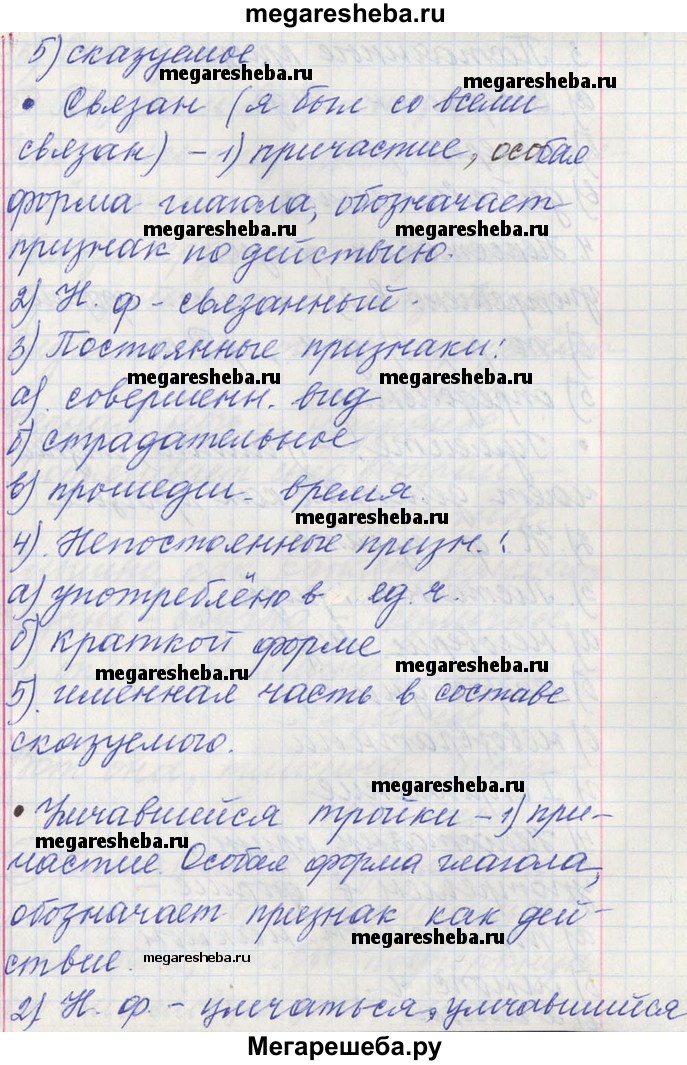 megaresheba.ru
5) сказуемое
megaresheba.ru
• Связан (я был со всеми
связан) – 1) причастие, особая
megaresheba.ru
форма глагола, обозначает
megaresheba.ru megaresheba.ru
признак по действию.
2) Н. ф – связанный.
3) Постоянные признаки:
megaresheba.ru megaresheba.ru
а). совершенн. вид
б) страдательное
в) прошедш. время.
megaresheba.ru
4). Непостоянные призн.:
а) употреблёно в ед. ч.
б) краткой форме
megaresheba.ru megaresheba.ru
5). именная часть в составе
сказуемого.
megaresheba.ru
• Умчавшейся тройки – 1) при-
megaresheba.ru
частие. Особая форма глагола,
обозначает признак как дей-
megaresheba.ru
ствие.
megaresheba.ru
2) Н. ф. – умчаться, умчавшийся
Мегарешеба.ру